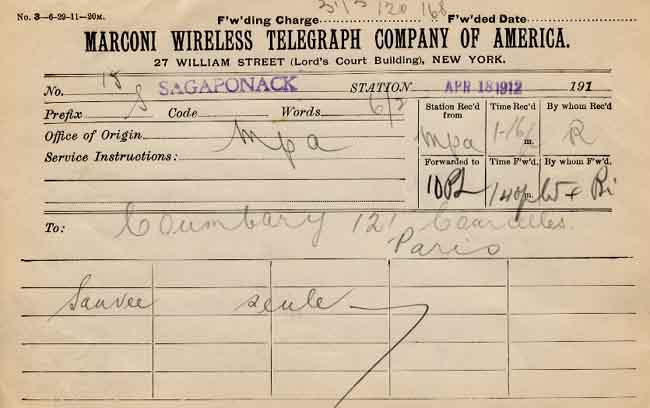 No. 3—6-29-11—20M. F'w'ding Charge 3.13 120 168 F'w'ded Date
MARCONI WIRELESS TELEGRAPH COMPANY OF AMERICA.
27 WILLIAM STREET (Lord's Court Building), NEW YORK.
No. 18 SAGAPONACK STATION APR 18 1912 191
Prefix S Code Words 6/2
Station Rec'd from Time Rec'd By whom Rec'd
Office of Origin mpa
mpa 1-16 m. R
Service Instructions:
Forwarded to Time F'w'd, By whom F'w'd,
140p m.
To: Coumbary 121 Courcelles
Paris
Sauvee seule